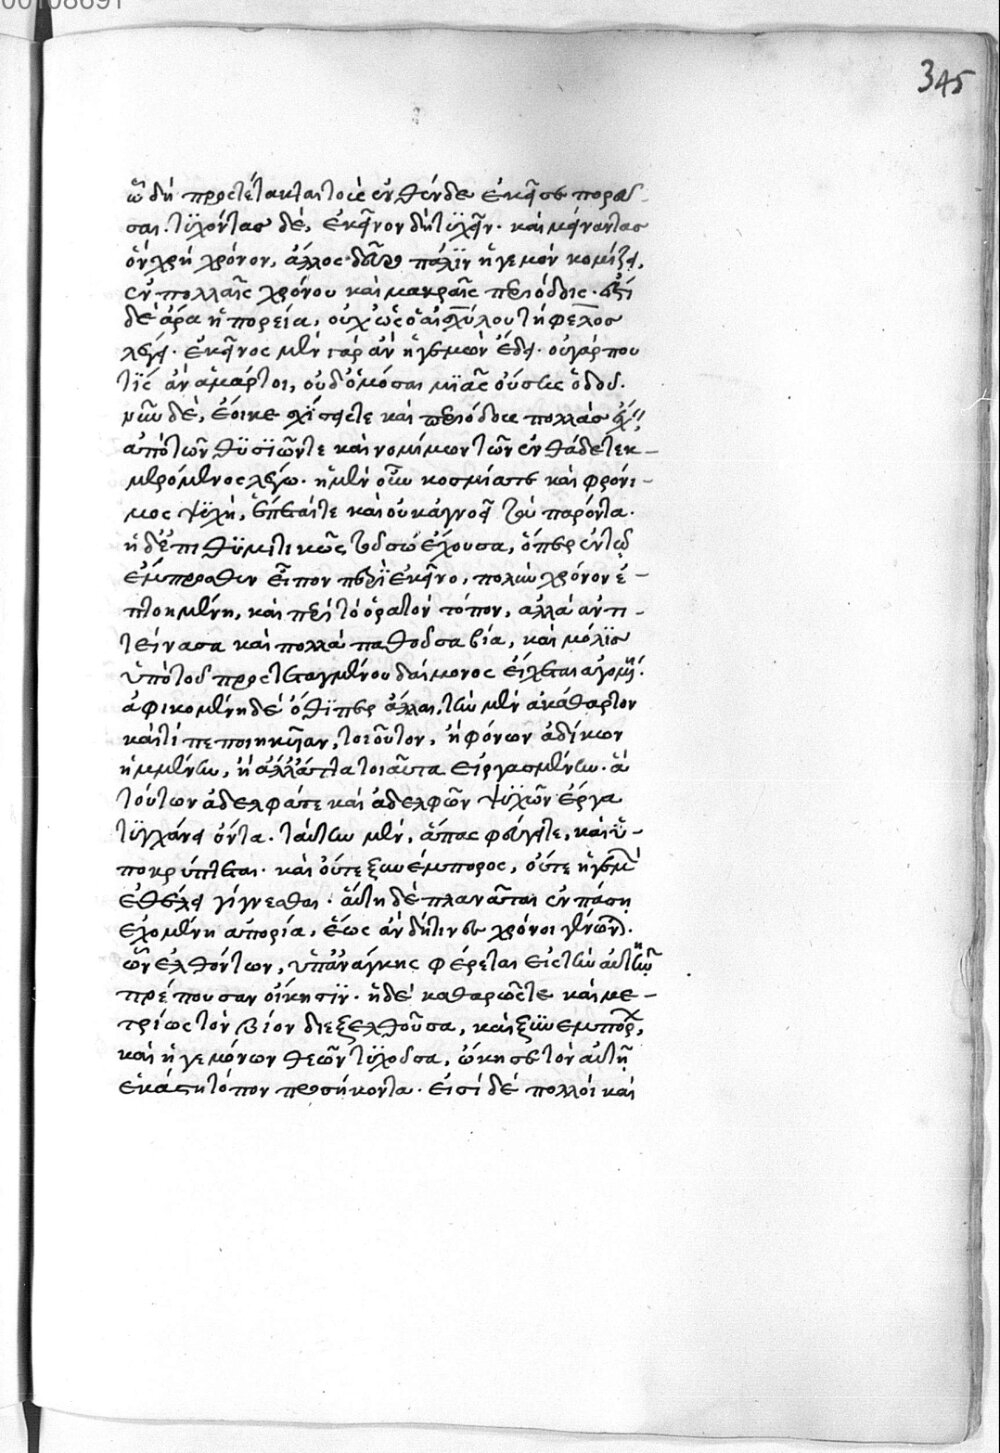 345
ᾧ δὴ προστέτακται τοὺς ἐνθένδε ἐκεῖσε πορεῦ-
σαι. τυχόντας δὲ, ἐκεῖνον δὴ τυχεῖν. καὶ μείναντας
ὃν χρὴ χρόνον, ἄλλος δεῦρο πάλιν ἡγεμὼν κομίζει,
ἐν πολλαῖς χρόνου καὶ μακραῖς περιόδοις. ἔστι
δὲ ἄρα ἡ πορεία, οὐχ ὡς ὁ αἰσχύλου τήφελος
λέγει. ἐκεῖνος μὲν γὰρ ἂν ἡγεμὼν ἔδει. οὐ γάρ που
τὶς ἂν ἁμάρτοι, οὐδαμόσαι μιᾶς οὔσης ὁδοῦ.
νῦν δὲ, ἔοικε σχίσεις τε καὶ περιόδους πολλὰς ἔχειν,
ἀπὸ τῶν θυσιῶν τε καὶ νομίμων τῶν ἐνθάδε τεκ-
μαιρόμενος λέγω. ἡ μὲν οὖν κοσμία τε καὶ φρόνι-
μος ψυχὴ, ἕπεταί τε καὶ οὐκ ἀγνοεῖ τὰ παρόντα.
ἡ δ' ἐπιθυμητικῶς τοῦ σώ ἔχουσα, ὅπερ ἐν τῷ
ἔμπροσθεν εἶπον περὶ ἐκεῖνο, πολὺν χρόνον ἐ-
πτοημένη, καὶ περὶ τὸ ὁρατὸν τόπον, ἀλλὰ ἀντι-
τείνασα καὶ πολλὰ παθοῦσα βία, καὶ μόλις
ὑπὸ τοῦ προστεταγμένου δαίμονος οἴχεται ἀγομένη.
ἀφικομένη δὲ ὅθι περ ἄλλαι, τὴν μὲν ἀκάθαρτον
καί τι πεποιηκυῖαν, τοιοῦτον, ἢ φόνων ἀδίκων
ἡμμένην, ἢ ἀλλ' ἄττα τοιαῦτα εἰργασμένην. ἃ
τούτων ἀδελφά τε καὶ ἀδελφῶν ψυχῶν ἔργα
τυγχάνει ὄντα. ταύτην μὲν, ἅπας φεύγει τε, καὶ ὑ-
ποκρύπτεται. καὶ οὔτε ξυνέμπορος, οὔτε ἡγεμὼν
ἐθέλει γίγνεσθαι. αὕτη δὲ πλανᾶται ἐν πάσῃ
ἐχομένη ἀπορία, ἕως ἂν δή τινες χρόνοι γένωνται.
ὧν ἐλθόντων, ὑπ' ἀνάγκης φέρεται εἰς τὴν αὐτῇ
πρέπουσαν οἴκησιν. ἡ δὲ καθαρῶς τε καὶ με-
τρίως τὸν βίον διεξελθοῦσα, καὶ ξυνεμπόρων,
καὶ ἡγεμόνων θεῶν τυχοῦσα, ᾤκησε τὸν αὐτῇ
ἑκάστη τόπον προσήκοντα. εἰσὶ δὲ πολλοὶ καὶ